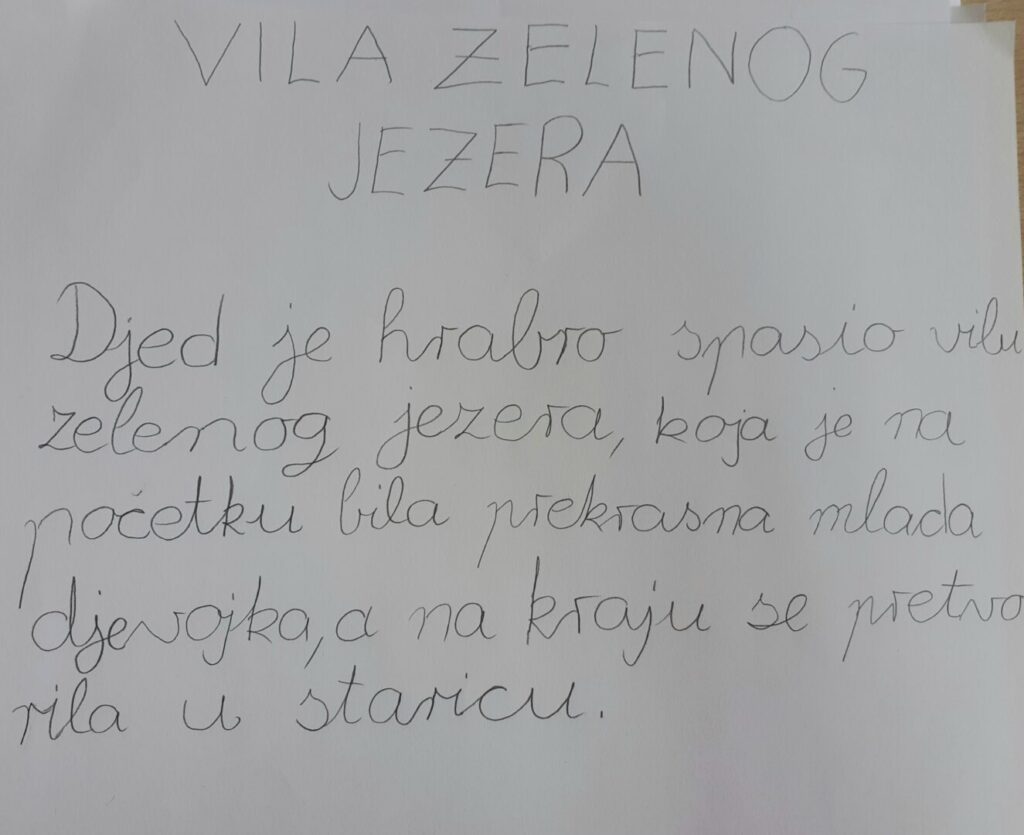 VILA ZELENOG
JEZERA
Djed je hrabro spasio vilu
zelenog jezera, koja je na
početku bila prekrasna mlada
djevojka, a na kraju se pretvo
rila u staricu.